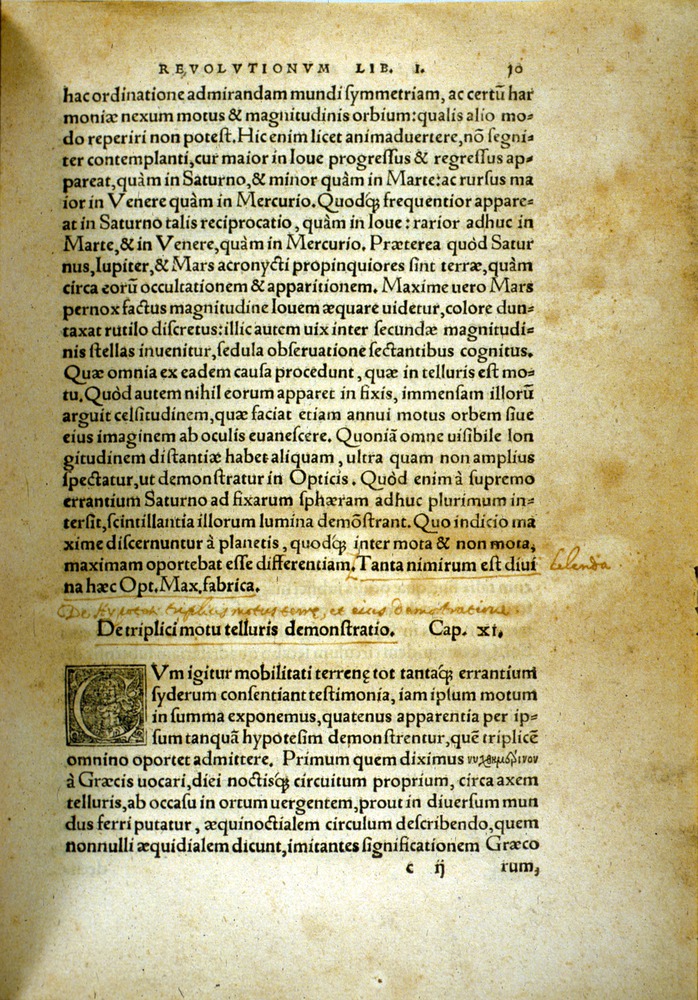 REVOLVTIONVM LIB. I. 10
hac ordinatione admirandam mundi ſymmetriam, ac certũ har
moniæ nexum motus & magnitudinis orbium: qualis alio mo⸗
do reperiri non poteſt. Hic enim licet animaduertere, nõ ſegni⸗
ter contemplanti, cur maior in Ioue progreſſus & regreſſus ap⸗
pareat, quàm in Saturno, & minor quàm in Marte: ac rurſus ma
ior in Venere quàm in Mercurio. Quodq́; frequentior appare⸗
at in Saturno talis reciprocatio, quàm in Ioue: rarior adhuc in
Marte, & in Venere, quàm in Mercurio. Præterea quòd Satur
nus, Iupiter, & Mars acronycti propinquiores ſint terræ, quàm
circa eorũ occultationem & apparitionem. Maxime uero Mars
pernox factus magnitudine Iouem æquare uidetur, colore dun⸗
taxat rutilo diſcretus: illic autem uix inter ſecundæ magnitudi⸗
nis ſtellas inuenitur, ſedula obſeruatione ſectantibus cognitus.
Quæ omnia ex eadem cauſa procedunt, quæ in telluris eſt mo⸗
tu. Quòd autem nihil eorum apparet in fixis, immenſam illorũ
arguit celſitudinem, quæ faciat etiam annui motus orbem ſiue
eius imaginem ab oculis euaneſcere. Quoniã omne uiſibile lon
gitudinem diſtantiæ habet aliquam, ultra quam non amplius
ſpectatur, ut demonſtratur in Opticis. Quòd enim à ſupremo
errantium Saturno ad fixarum ſphæram adhuc plurimum in⸗
terſit, ſcintillantia illorum lumina demõſtrant. Quo indicio ma
xime diſcernuntur à planetis, quodq́; inter mota & non mota,
maximam oportebat eſſe differentiam. Tanta nimirum eſt diui delenda
na hæc Opt. Max. fabrica.
De hypotesi triplicis motus terre, et eius demonstratione.
De triplici motu telluris demonſtratio. Cap. XI.
CVm igitur mobilitati terrenę tot tantaq́; errantium
ſyderum conſentiant teſtimonia, iam ipſum motum
in ſumma exponemus, quatenus apparentia per ip⸗
ſum tanquã hypoteſim demonſtrentur, quẽ triplicẽ
omnino oportet admittere. Primum quem diximus νυχθημέρινον
à Græcis uocari, diei noctisq́; circuitum proprium, circa axem
telluris, ab occaſu in ortum uergentem, prout in diuerſum mun
dus ferri putatur, æquinoctialem circulum deſcribendo, quem
nonnulli æquidialem dicunt, imitantes ſignificationem Græco
c ij rum,